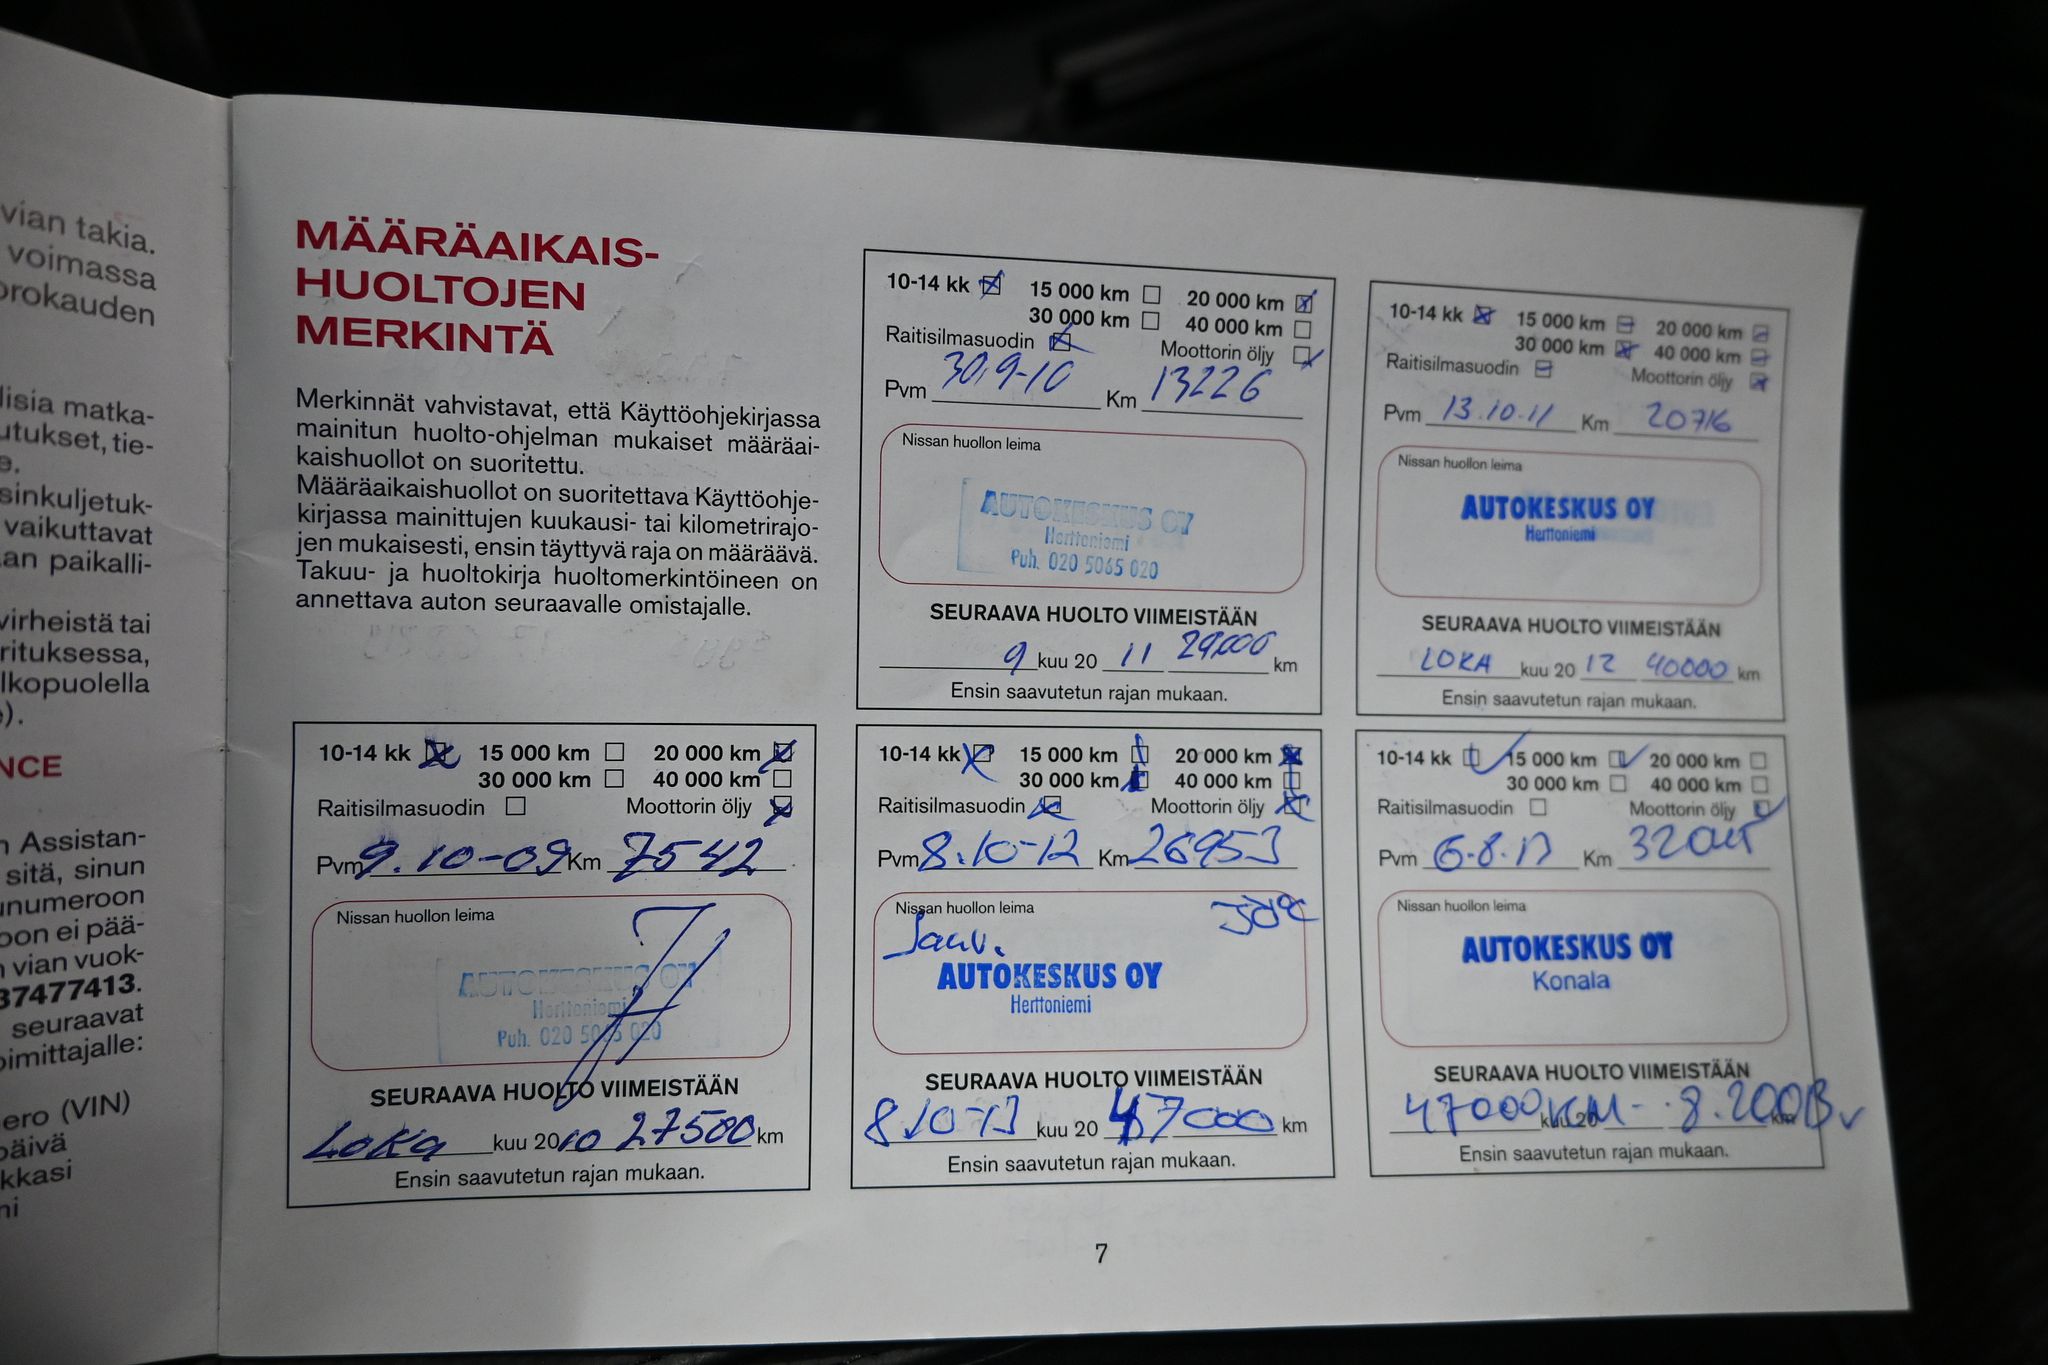 vian takia.
voimassa
orokauden
lisia matka-
utukset, tie-
e.
sinkuljetuk-
vaikuttavat
an paikalli-
virheistä tai
rituksessa,
lkopuolella
).
NCE
n Assistan-
sitä, sinun
unumeroon
oon ei pää-
n vian vuok-
37477413.
seuraavat
oimittajalle:
ero (VIN)
päivä
kkasi
ni
MÄÄRÄAIKAIS-
HUOLTOJEN
MERKINTÄ
Merkinnät vahvistavat, että Käyttöohjekirjassa
mainitun huolto-ohjelman mukaiset määräai-
kaishuollot on suoritettu.
Määräaikaishuollot on suoritettava Käyttöohje-
kirjassa mainittujen kuukausi- tai kilometrirajo-
jen mukaisesti, ensin täyttyvä raja on määräävä.
Takuu- ja huoltokirja huoltomerkintöineen on
annettava auton seuraavalle omistajalle.
10-14 kk 15 000 km 20 000 km
30 000 km 40 000 km
Raitisilmasuodin Moottorin öljy
Pvm 9.10-09 Km 7542
Nissan huollon leima
AUTOKESKUS OY
Herttoniemi
Puh. 020 5065 020
SEURAAVA HUOLTO VIIMEISTÄÄN
LOKA kuu 20 10 27500 km
Ensin saavutetun rajan mukaan.
10-14 kk 15 000 km 20 000 km
30 000 km 40 000 km
Raitisilmasuodin Moottorin öljy
Pvm 30.9-10 Km 13226
Nissan huollon leima
AUTOKESKUS OY
Herttoniemi
Puh. 020 5065 020
SEURAAVA HUOLTO VIIMEISTÄÄN
9 kuu 20 11 29000 km
Ensin saavutetun rajan mukaan.
10-14 kk 15 000 km 20 000 km
30 000 km 40 000 km
Raitisilmasuodin Moottorin öljy
Pvm 13.10.11 Km 20716
Nissan huollon leima
AUTOKESKUS OY
Herttoniemi
SEURAAVA HUOLTO VIIMEISTÄÄN
LOKA kuu 20 12 40000 km
Ensin saavutetun rajan mukaan.
10-14 kk 15 000 km 20 000 km
30 000 km 40 000 km
Raitisilmasuodin Moottorin öljy
Pvm 8.10-12 Km 26953
Nissan huollon leima
AUTOKESKUS OY
Herttoniemi
SEURAAVA HUOLTO VIIMEISTÄÄN
8.10-13 kuu 20 47000 km
Ensin saavutetun rajan mukaan.
10-14 kk 15 000 km 20 000 km
30 000 km 40 000 km
Raitisilmasuodin Moottorin öljy
Pvm 6.8.13 Km
Nissan huollon leima
AUTOKESKUS OY
Konala
SEURAAVA HUOLTO VIIMEISTÄÄN
47000 KM kuu 20 km
Ensin saavutetun rajan mukaan.
7